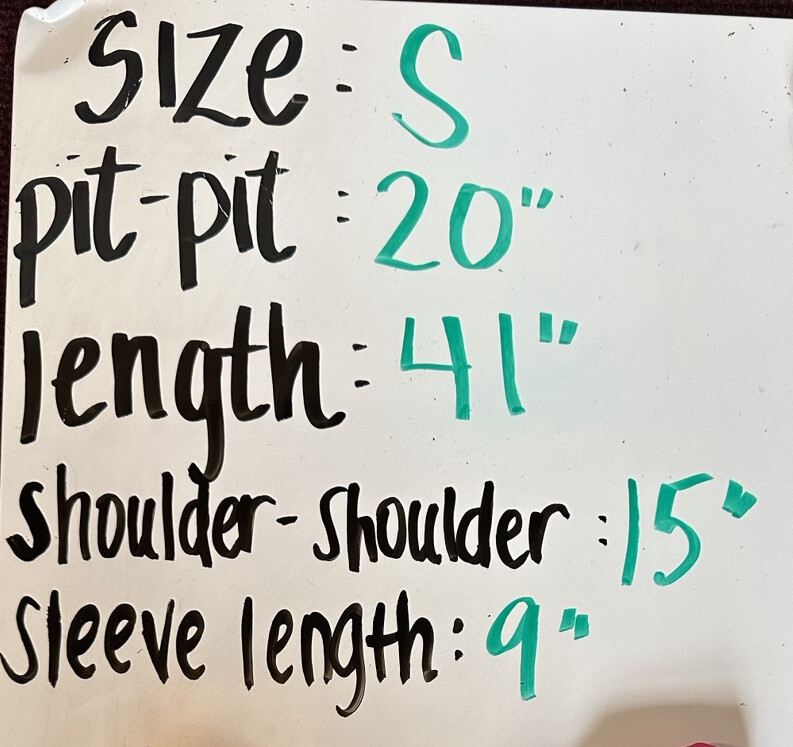 Size: S
pit-pit: 20"
length: 41"
shoulder-shoulder: 15"
sleeve length: 9"